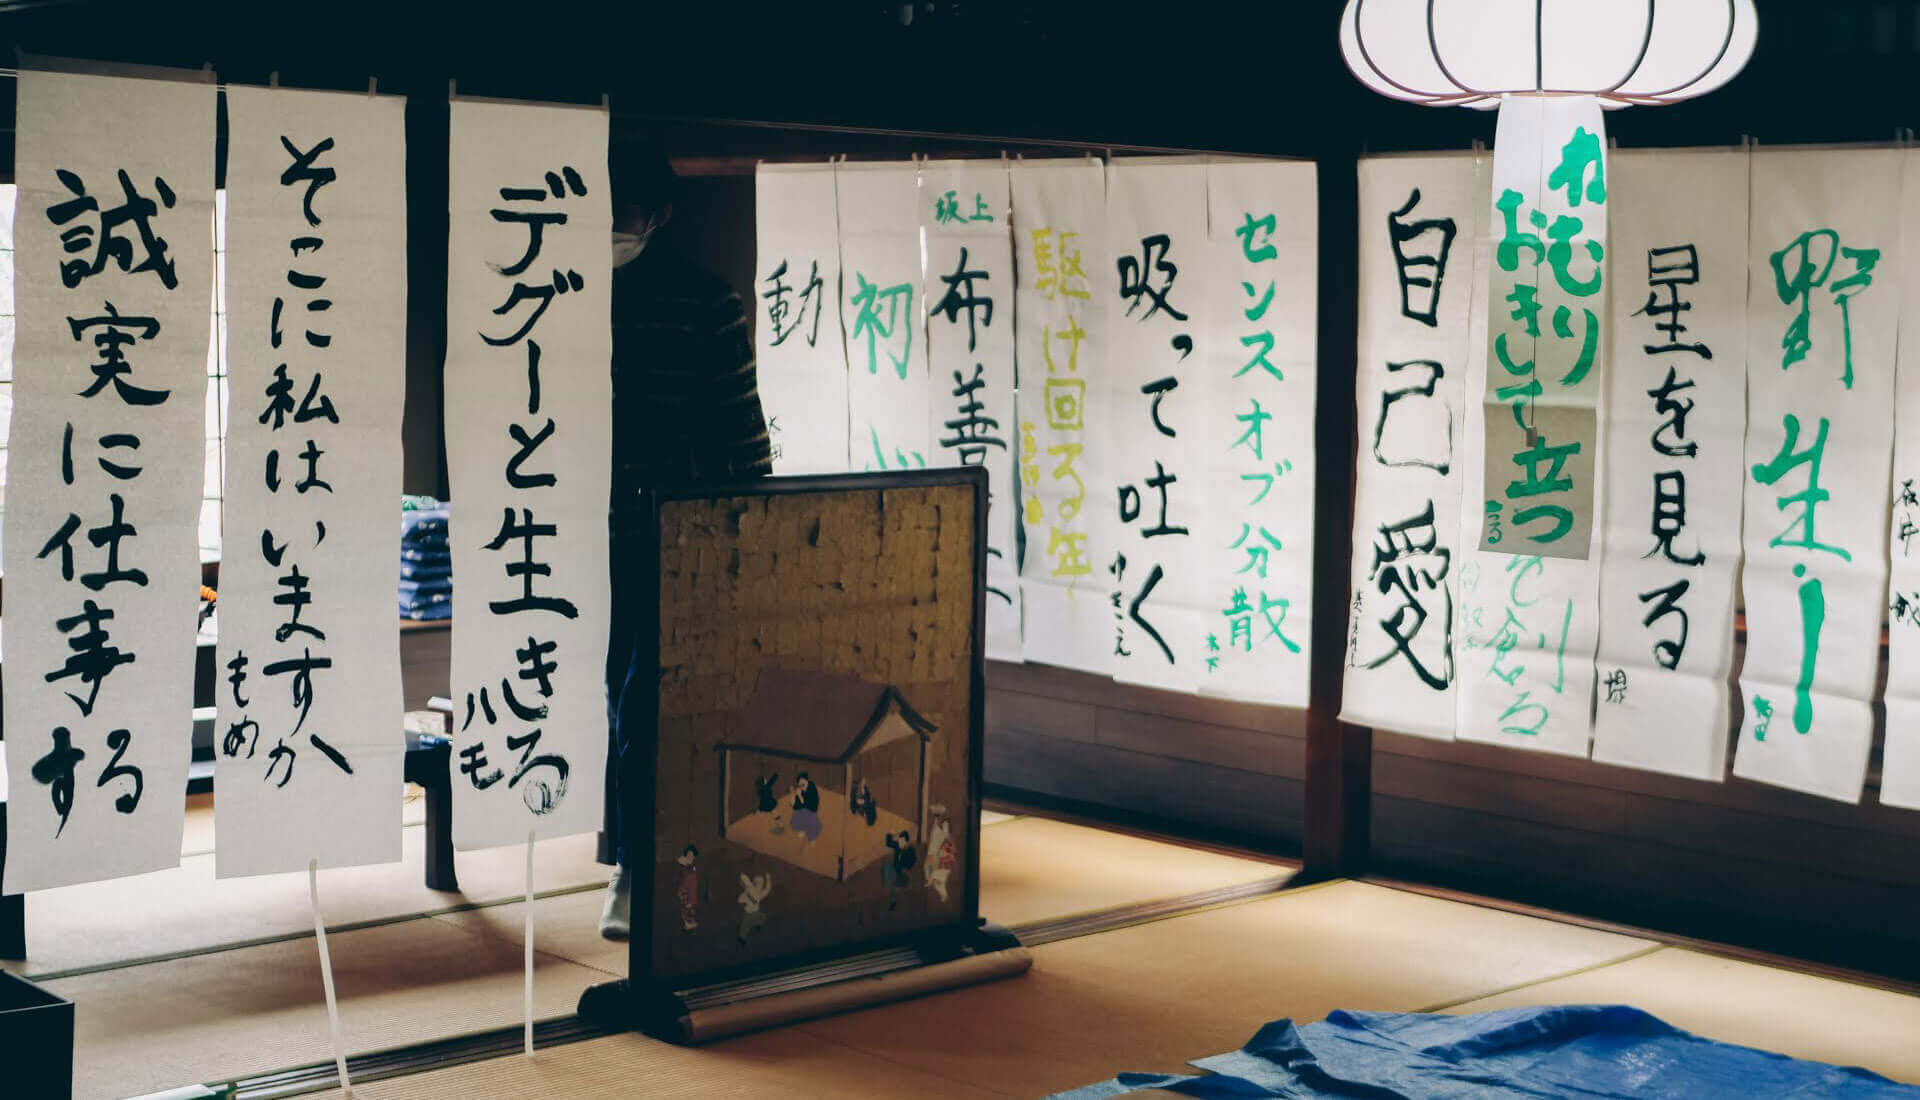 誠実に仕事する
そこに私はいますか
もめ
デグーと生きる
ハモ
動
初心
坂上
布善
駆け回る年
吸って吐く
センスオブ分散
木下
自己愛
ねむり
おきて
立つ
つる
を創る
星を見る
堤
野生!
石井